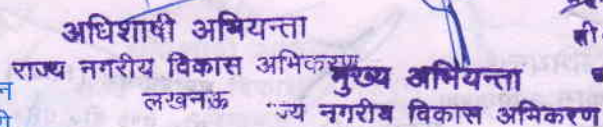 अधिशाषी अभियन्ता
राज्य नगरीय विकास अभिकरण
लखनऊ
मुख्य अभियन्ता
ज्य नगरीय विकास अभिकरण